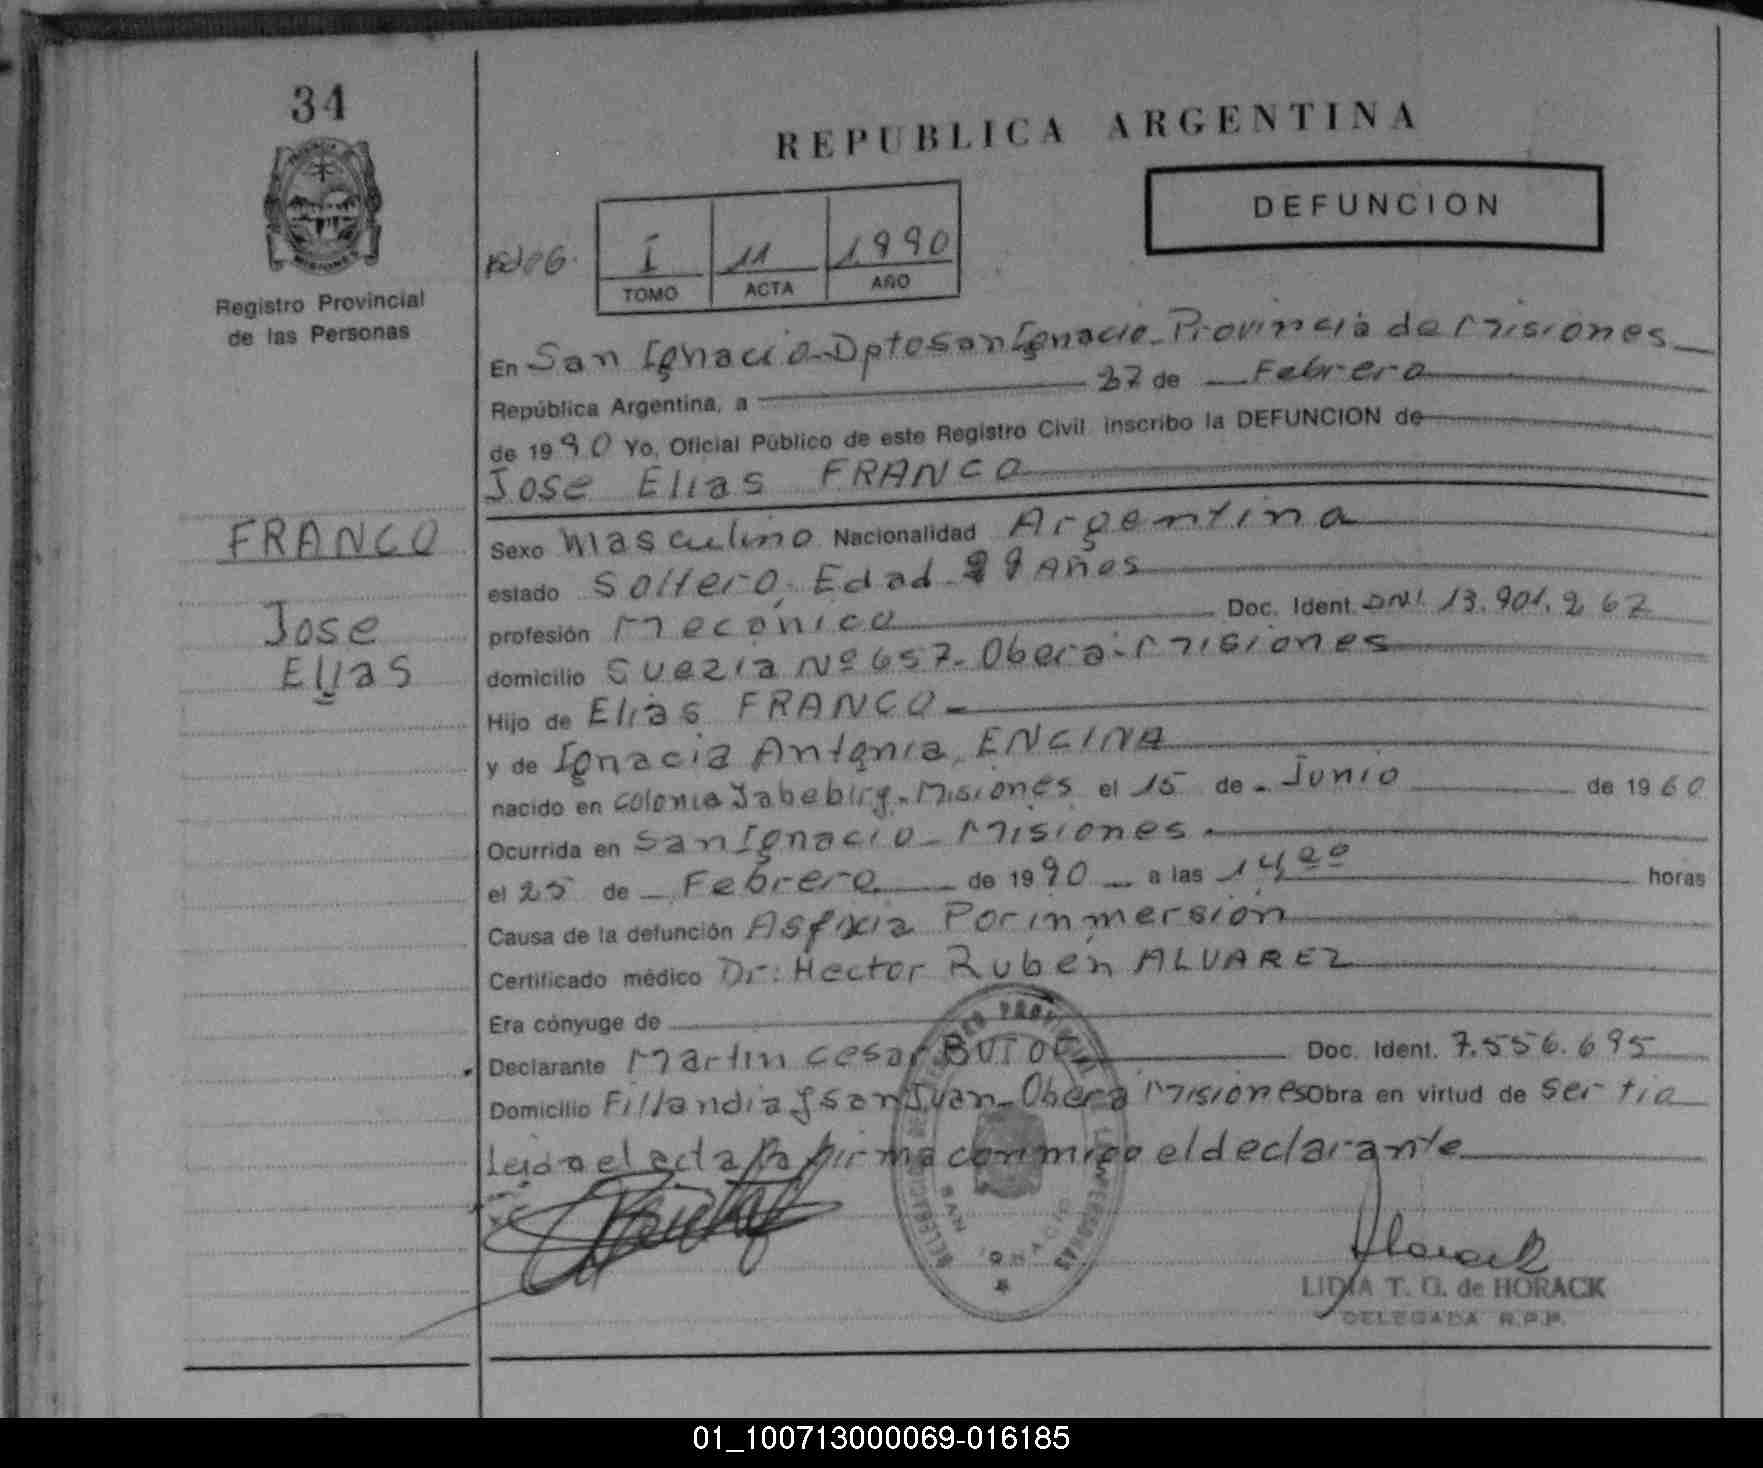 34
REPUBLICA ARGENTINA
DEFUNCION
I 11 1990
TOMO ACTA AÑO
Registro Provincial
de las Personas
En San Ignacio-Dpto San Ignacio-Provincia de Misiones
República Argentina, a 27 de Febrero
de 1990 Yo, Oficial Público de este Registro Civil inscribo la DEFUNCION de
Jose Elias FRANCO
FRANCO
Jose
Elias
Sexo Masculino Nacionalidad Argentina
estado Soltero, Edad 29 Años
profesión Mecánico Doc. Ident. DNI. 13.901.262
domicilio Suezia Nº 657-Obera-Misiones
Hijo de Elias FRANCO
y de Ignacia Antonia ENCINA
nacido en Colonia Yabebiry-Misiones el 15 de Junio de 1960
Ocurrida en San Ignacio-Misiones
el 25 de Febrero de 1990 a las 14,00 horas
Causa de la defunción Asfixia Por inmersión
Certificado médico Dr: Hector Ruben ALVAREZ
Era cónyuge de
Declarante Martin Cesar Doc. Ident. 7.556.695
Domicilio Fillandia y San Juan-Obera Misiones Obra en virtud de Ser tio
Leida el acta la firma conmigo el declarante
SAN IGNACIO
LIDIA T. G. de HORACK
DELEGADA R.P.P.
01_100713000069-016185